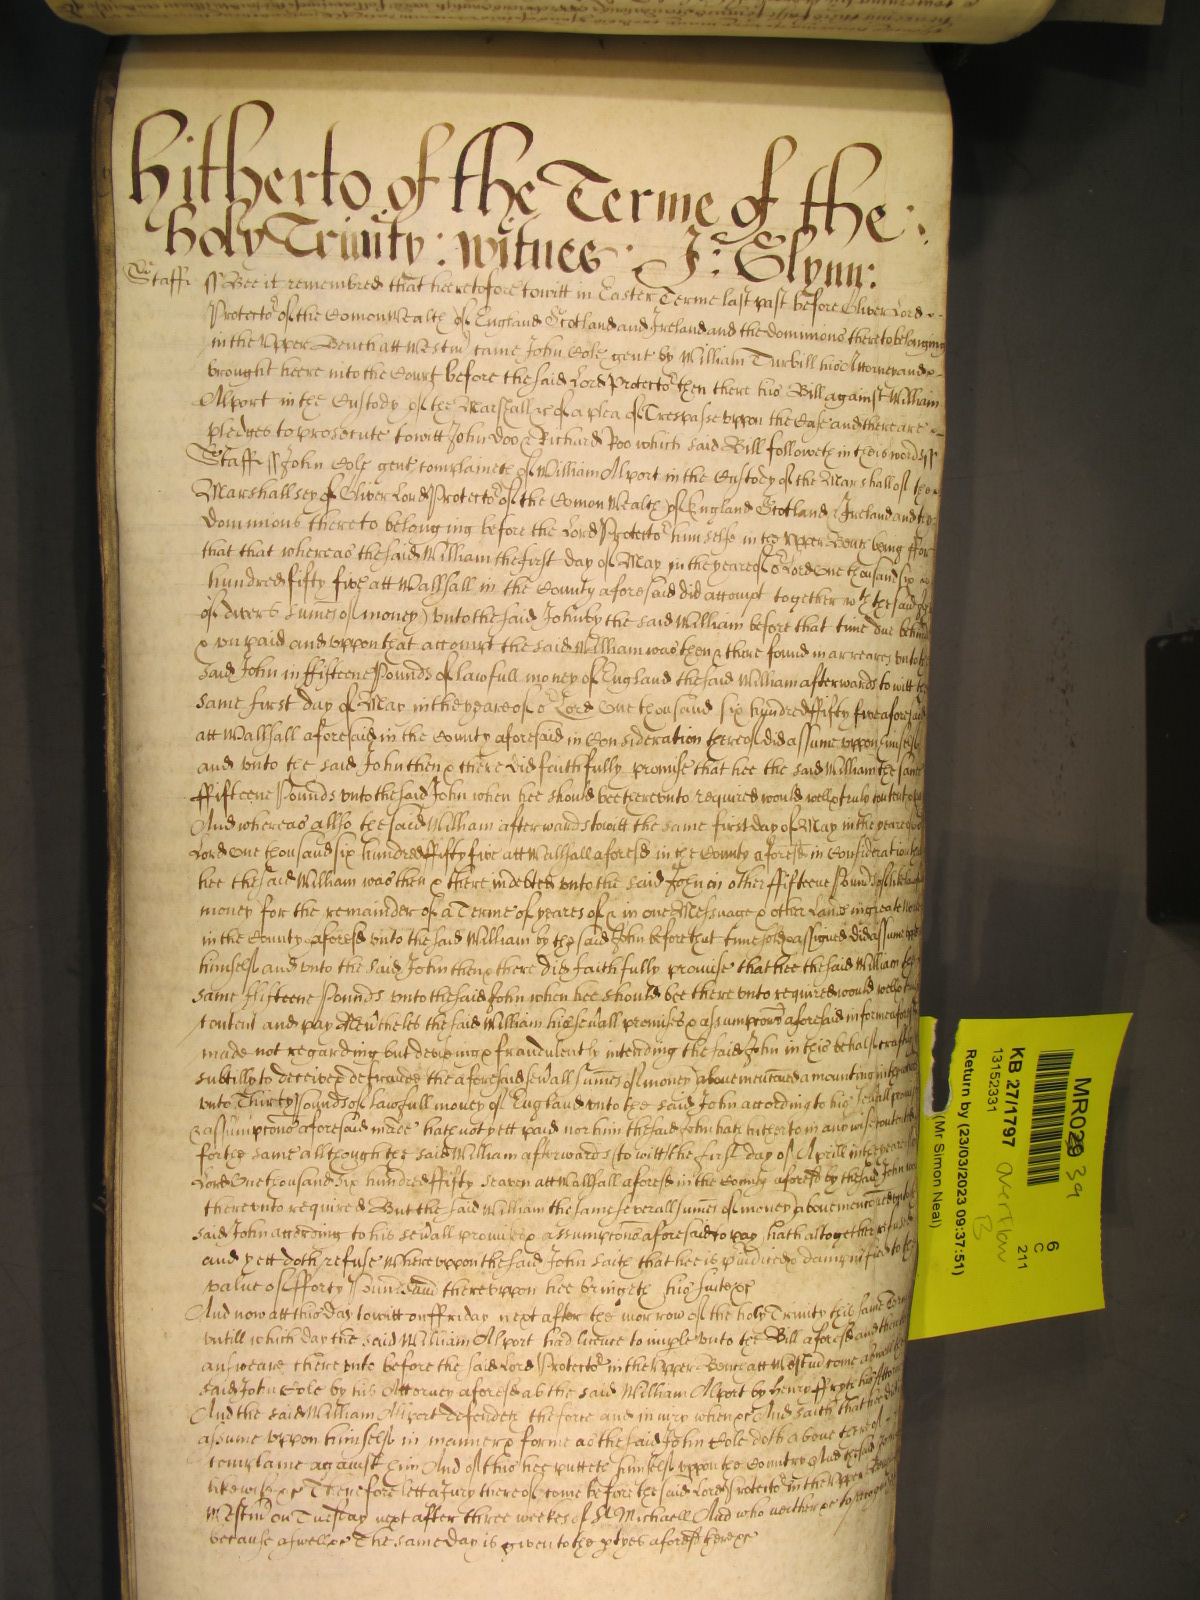 hitherto of the Terme of the:
holy Trinity: witnes: Jo: Glynn:
Staff ss Bee it remembred that heretofore towitt in Easter Terme last past before Oliver Lord
Protector of the Comon Wealth of England Scotland and Ireland and the dominions thereto belonging
in the Upper Bench att Westmr came John Cole gent by William Turbill his Attorney and
brought heere into the Court before the said Lord Protector then there his Bill against William
Alport in the Custody of the Marshall &c of a plea of Trespasse uppon the Case and there are
pledges to prosecute towitt John Doo & Richard Roo which said Bill followeth in theis words ss
Staff ss John Cole gent complaineth of William Alport in the Custody of the Marshall of the
Marshallsey of Oliver Lord Protector of the Comon Wealth of England Scotland & Ireland and the
Dominions thereto belonging before the Lord Protector himselfe in the Upper Bench being ffor
that that whereas the said William the first day of May in the yeare of or Lord One thousand six
hundred fifty five att Wallsall in the County aforesaid did attompt together wth the said John
of divers sumes of money unto the said John by the said William before that time due behind
& unpaid and uppon that accompt the said William was then & there found in arreares unto the
said John in ffifteene Pounds of lawfull money of England the said William afterwards to witt the
same first day of May in the yeare of or Lord One thousand six hundred ffifty five aforesaid
att Wallsall aforesaid in the County aforesaid in Consideration thereof did assume uppon himself
and unto the said John then & there did faithfully promise that hee the said William the same
ffifteene Pounds unto the said John when hee should bee thereunto required would well & truly content & pay
And whereas allso the said William afterwards towitt the same first day of May in the yeare of or
Lord One thousand six hundred ffifty five att Wallsall aforesd in the County aforesd in Consideration that
hee the said William was then & there indebted unto the said John in other ffifteene Pounds of like lawfull
money for the remainder of a Terme of yeares of & in one Messuage & other Lands in greate
in the County aforesd unto the said William by the said John before that time sold & assigned did assume uppon
himself and unto the said John then & there did faithfully promise that hee the said William the
same ffifteene Pounds unto the said John when hee should bee there unto required would well & truly
content and pay Nevertheles the said William his sevall promises & assumptons aforesaid in forme aforesd
made not regarding but deviseing & fraudulently intending the said John in this behalf craftily &
subtilly to deceive & defraude the aforesaid sevall sumes of money above mentioned amounting in the whole
unto Thirty Pounds of lawfull money of England unto the said John according to his sevall promises
& assumptons aforesaid made hath not yett paid nor him the said John hath hitherto in any wise contented
for the same allthough the said William afterwards (to witt) the first day of Aprill in the yeare of or
Lord One thousand six hundred ffifty seaven att Wallsall aforesd in the County aforesd by the said John was
thereunto required But the said William the same severall sumes of money above mentioned unto the
said John according to his sevall promises & assumptons aforesaid to pay hath altogether refused
and yett doth refuse Whereuppon the said John saith that hee is prejudiced & dampnified to the
value of fforty Pounds and thereuppon hee bringeth his suite &c
And now att this Day to witt on ffriday next after the morrow of the holy Trinity this same Terme
untill which day the said William Alport had licence to imple unto the Bill aforesd and then to
answeare there unto before the said Lord Protector in the Upper Bench att Westmr come aswell the
said John Cole by his Attorney aforesd as the said William Alport by Henry ffryth his Attorney
And the said William Alport defendeth the force and injury when &c And saith that hee did not
assume uppon himself in manner & forme as the said John Cole doth above thereof
complaine against him And of this hee putteth himself uppon the Country And the said John
likewise &c Therefore lett a Jury thereof come before the said Lord Protector in the Upper Bench
Westmr on Tuesday next after three weekes of St Michaell And who neither &c to recognize
because aswell &c The same day is given to the ptyes aforesd here &c
MR029 39
KB 27/1797 overflow
B
13152331
6
C
211
Return by (23/03/2023 09:37:51)
(Mr Simon Neal)